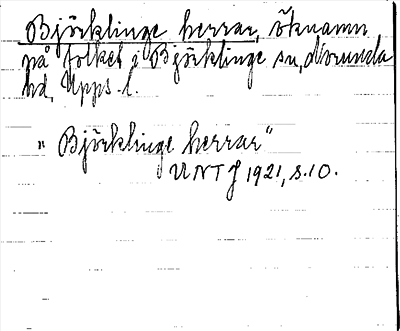 Björklinge herrar, öknamn
på folket i Björklinge sn, Norunda
hd, Upps. l.
"Björklinge herrar"
UNT J 1921, s. 10.